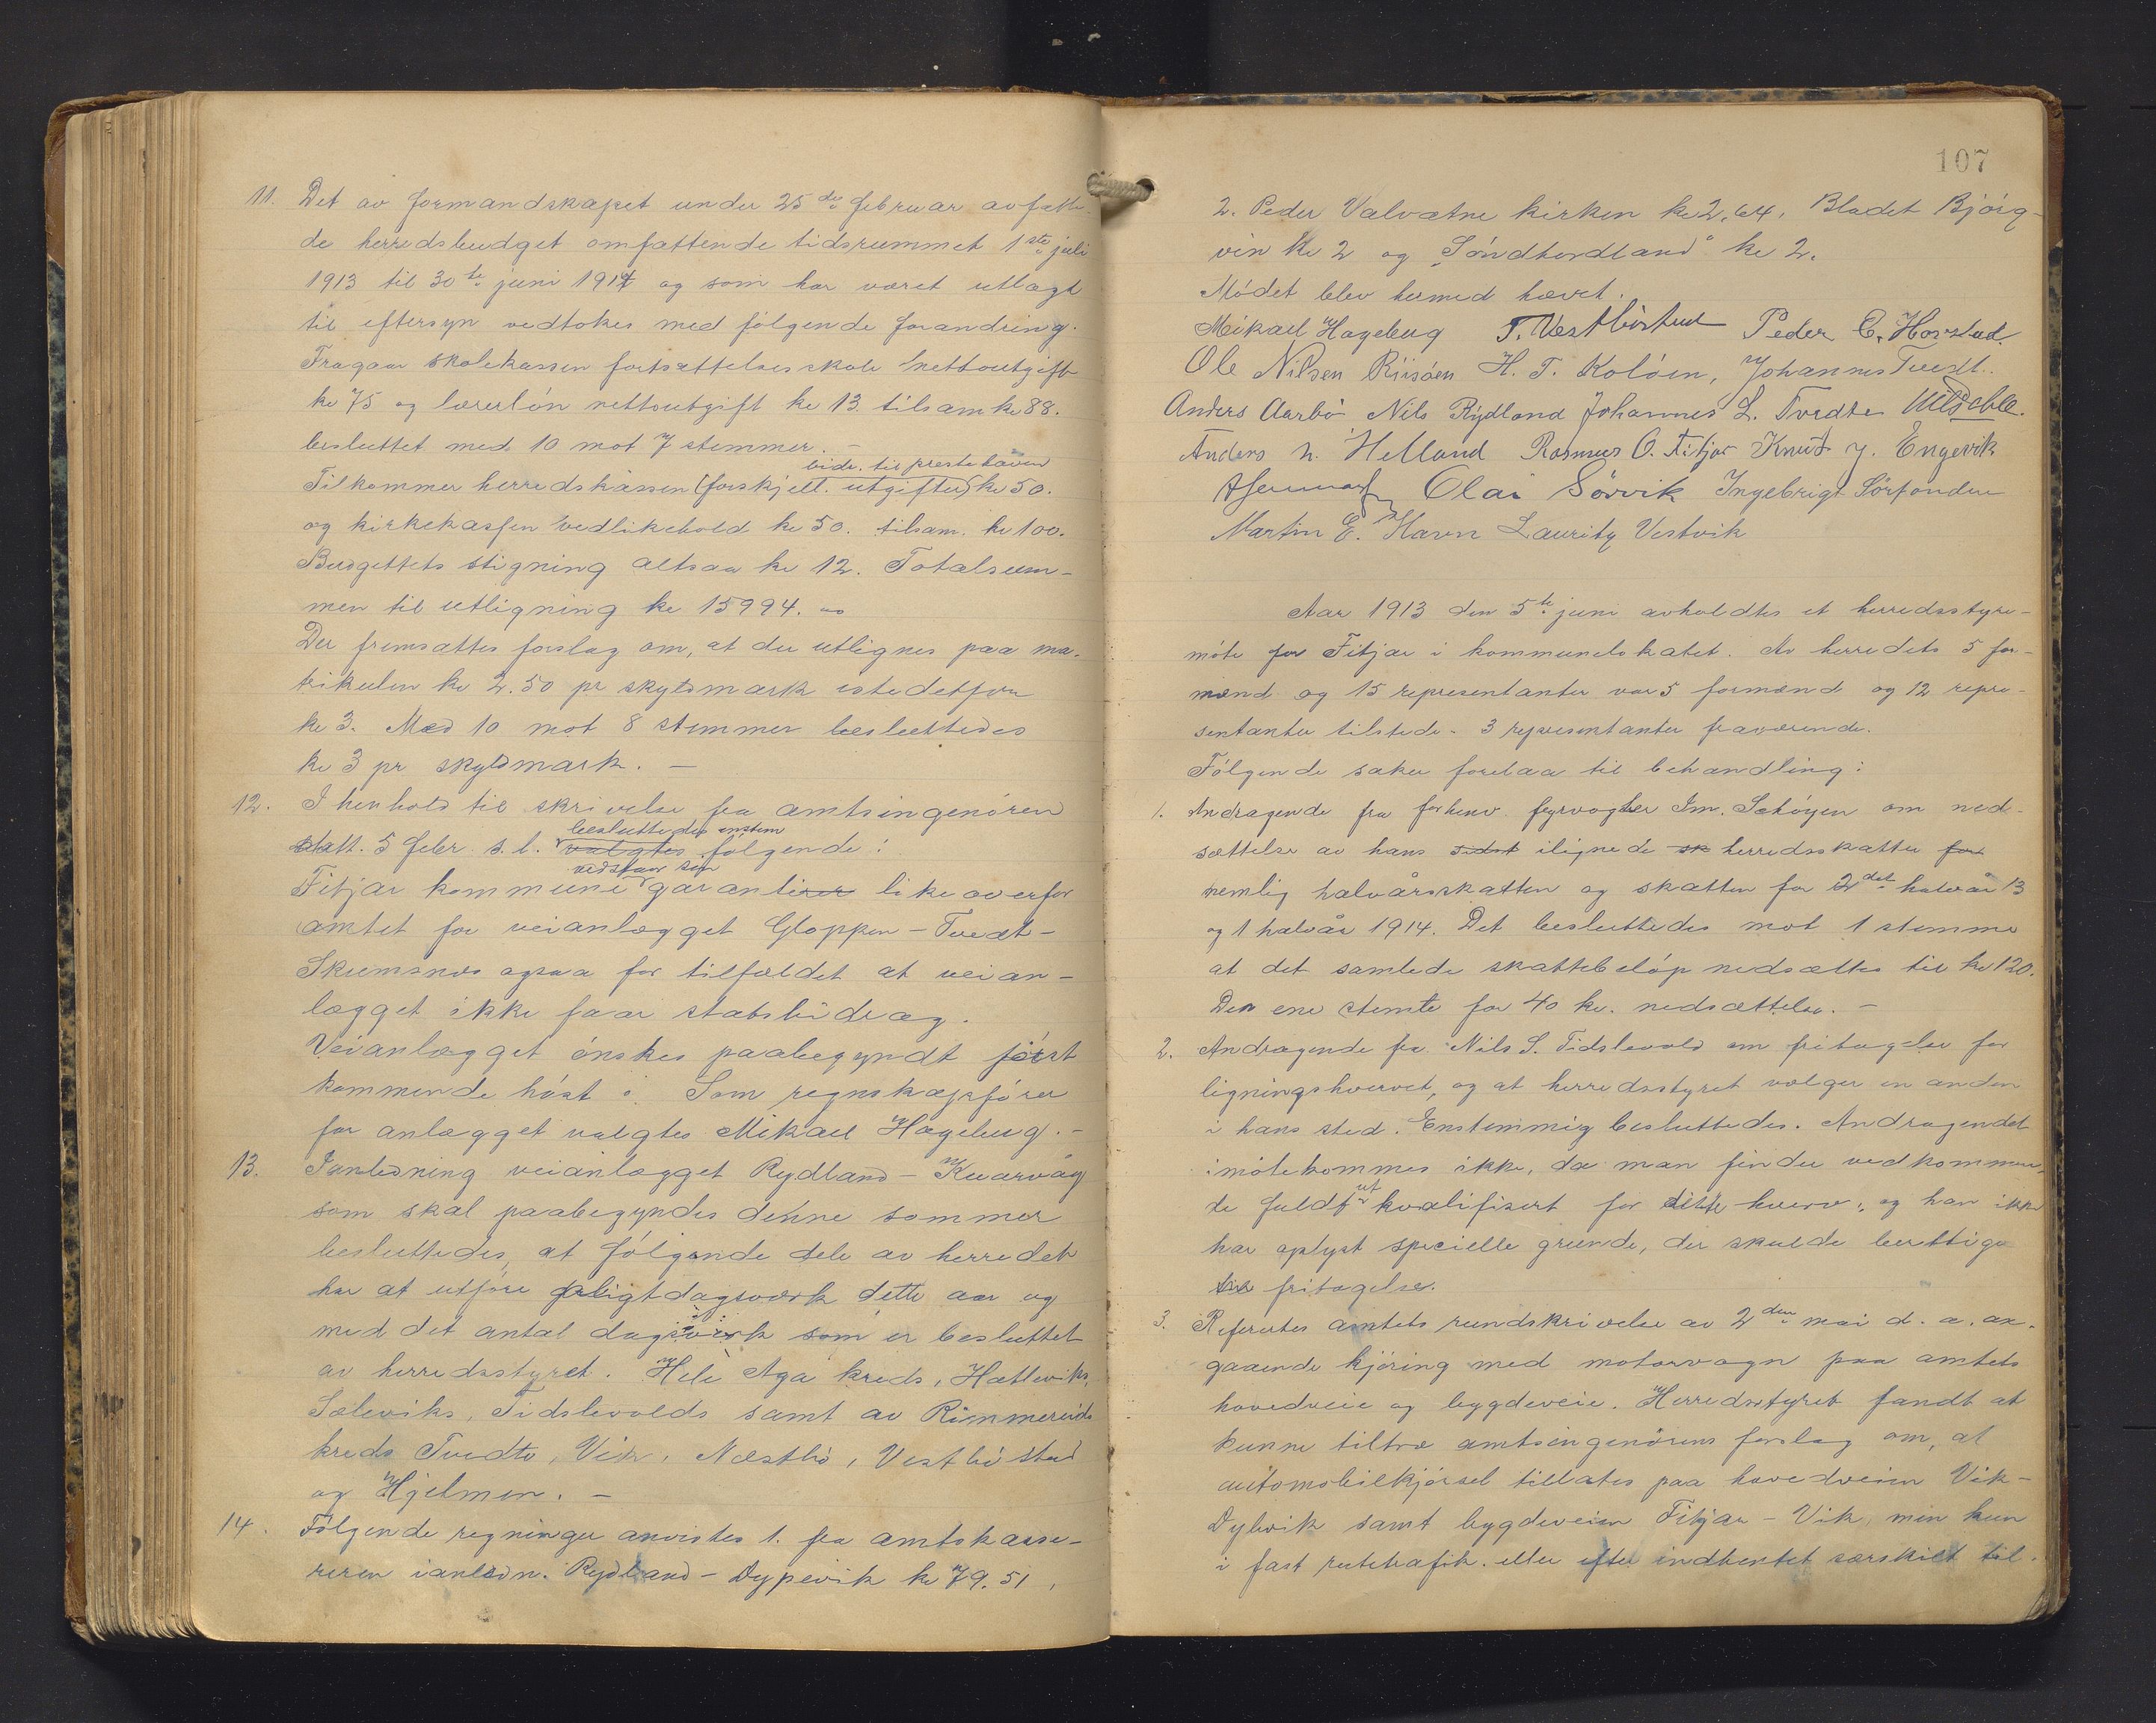 11. Det av formandskapet under 25de februar avfatte-
de herredsbudget omfattende tidsrummet 1ste juli
1913 til 30te juni 1914 og som har været utlagt
til eftersyn vedtokes med følgende forandring.
Fragaar skolekassen fortsættelsesskole nettoutgift
kr 75 og lærerløn nettoutgift kr 13 tilsam kr 88.
besluttet med 10 mot 7 stemmer. –
bidr. til prestehaven
Tilkommer herredskassen (forskjell. utgifter) kr 50.
og kirkekassen vedlikehold kr 50. tilsam. kr 100.
Budgettets stigning altsaa kr 12. Totalsum-
men til utligning kr 15994.00
Der fremsattes forslag om, at der utlignes paa ma-
trikulen kr 2.50 pr skyldmark istedetfor
kr 3. Med 10 mot 8 stemmer besluttedes
kr 3 pr skyldmark. –
12. I henhold til skrivelse fra amtsingeniøren
besluttedes enstem
datt. 5 febr. s. l. valgtes følgende:
vedstaar sin
Fitjar kommune garantirer likeoverfor
amtet for veianlægget Gloppen – Tvedt –
Skumsnes ogsaa for tilfældet at veian-
lægget ikke faar statsbidrag.
Veianlægget ønskes paabegyndt først
kommende høst. Som regnskapsfører
for anlægget valgtes Mikael Hageberg. –
13. Ianledning veianlægget Rydland – Kvarvåg
som skal paabegyndes denne sommer
besluttedes, at følgende dele av herredet
har at utføre pligtdagsverk dette aar og
med det antal dagsverk som er besluttet
av herredsstyret. Hele Aga kreds, Hatleviks,
Sæleviks, Tidslevolds samt av Rimmereids
kreds Tvedte, Vik, Næstbø, Vestbøstad
og Hjelmen. –
14. Følgende regninger anvistes 1. fra amtskasse-
reren ianledn. Rydland – Dypevik kr 79.51,
107
2. Peder Valvatne kirken kr 2,64, Bladet Bjørg-
vin kr 2 og "Søndhordland" kr 2.
Mødet blev hermed hævet.
Mikael Hageberg T. Vestbøstad Peder C. Havstad
Ole Nilsen Riisøen H. T. Koløen, Johannes Tvedt.
Anders Aarbø Nils Rydland Johannes L. Tvedte
Anders N. Helland Rasmus O. Fitjar Knut J. Engevik
Olai Sørvik Ingebrigt Sørfonden
Martin E. Havn Lauritz Vestvik
Aar 1913 den 5te juni avholdtes et herredsstyre-
møte for Fitjar i kommunelokalet. Av herredets 5 for-
mænd og 15 representanter var 5 formænd og 12 repre-
sentanter tilstede. 3 representanter fraværende.
Følgende saker forelaa til behandling:
1. Andragende fra forhenv. fyrvogter Im. Schøyen om ned-
sættelse av hans sidst ilignede sk herredsskatter for
nemlig halvårsskatten og skatten for 2det halvår 13
og 1 halvår 1914. Det besluttedes mot 1 stemme
at det samlede skattebeløp nedsættes til kr 120.
Den ene stemte for 40 kr. nedsættelse. –
2. Andragende fra Nils S. Tidslevold om fritagelse for
ligningshvervet, og at herredsstyret vælger en anden
i hans sted. Enstemmig besluttedes. Andragendet
imøtekommes ikke, da man finder vedkommen-
de fuldt ut kvalifisert for dette hverv, og han ikke
har oplyst specielle grunde, der skulde berettige
til fritagelse.
3. Refertes amtets rundskrivelse av 2den mai d. a. an-
gaaende kjøring med motorvogn paa amtets
hovedveie og bygdeveie. Herredsstyret fandt at
kunne tiltræ amtsingeniørens forslag om, at
automobilkjørsel tillates paa hovedveien Vik –
Dybvik samt bygdeveien Fitjar – Vik, men kun
i fast rutetrafik eller efter indhentet særskilt til-